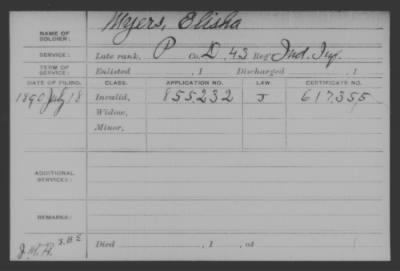 NAME OF SOLDIER: Myers, Elisha
SERVICE: Late rank, P Co. D, 43 Reg't Ind. Inf.
TERM OF SERVICE: Enlisted , 1 Discharged , 1
DATE OF FILING. CLASS. APPLICATION NO. LAW. CERTIFICATE NO.
1890 July 18 Invalid, 855.232 J 617.355
Widow,
Minor,
ADDITIONAL SERVICES:
REMARKS:
Died , 1 , at